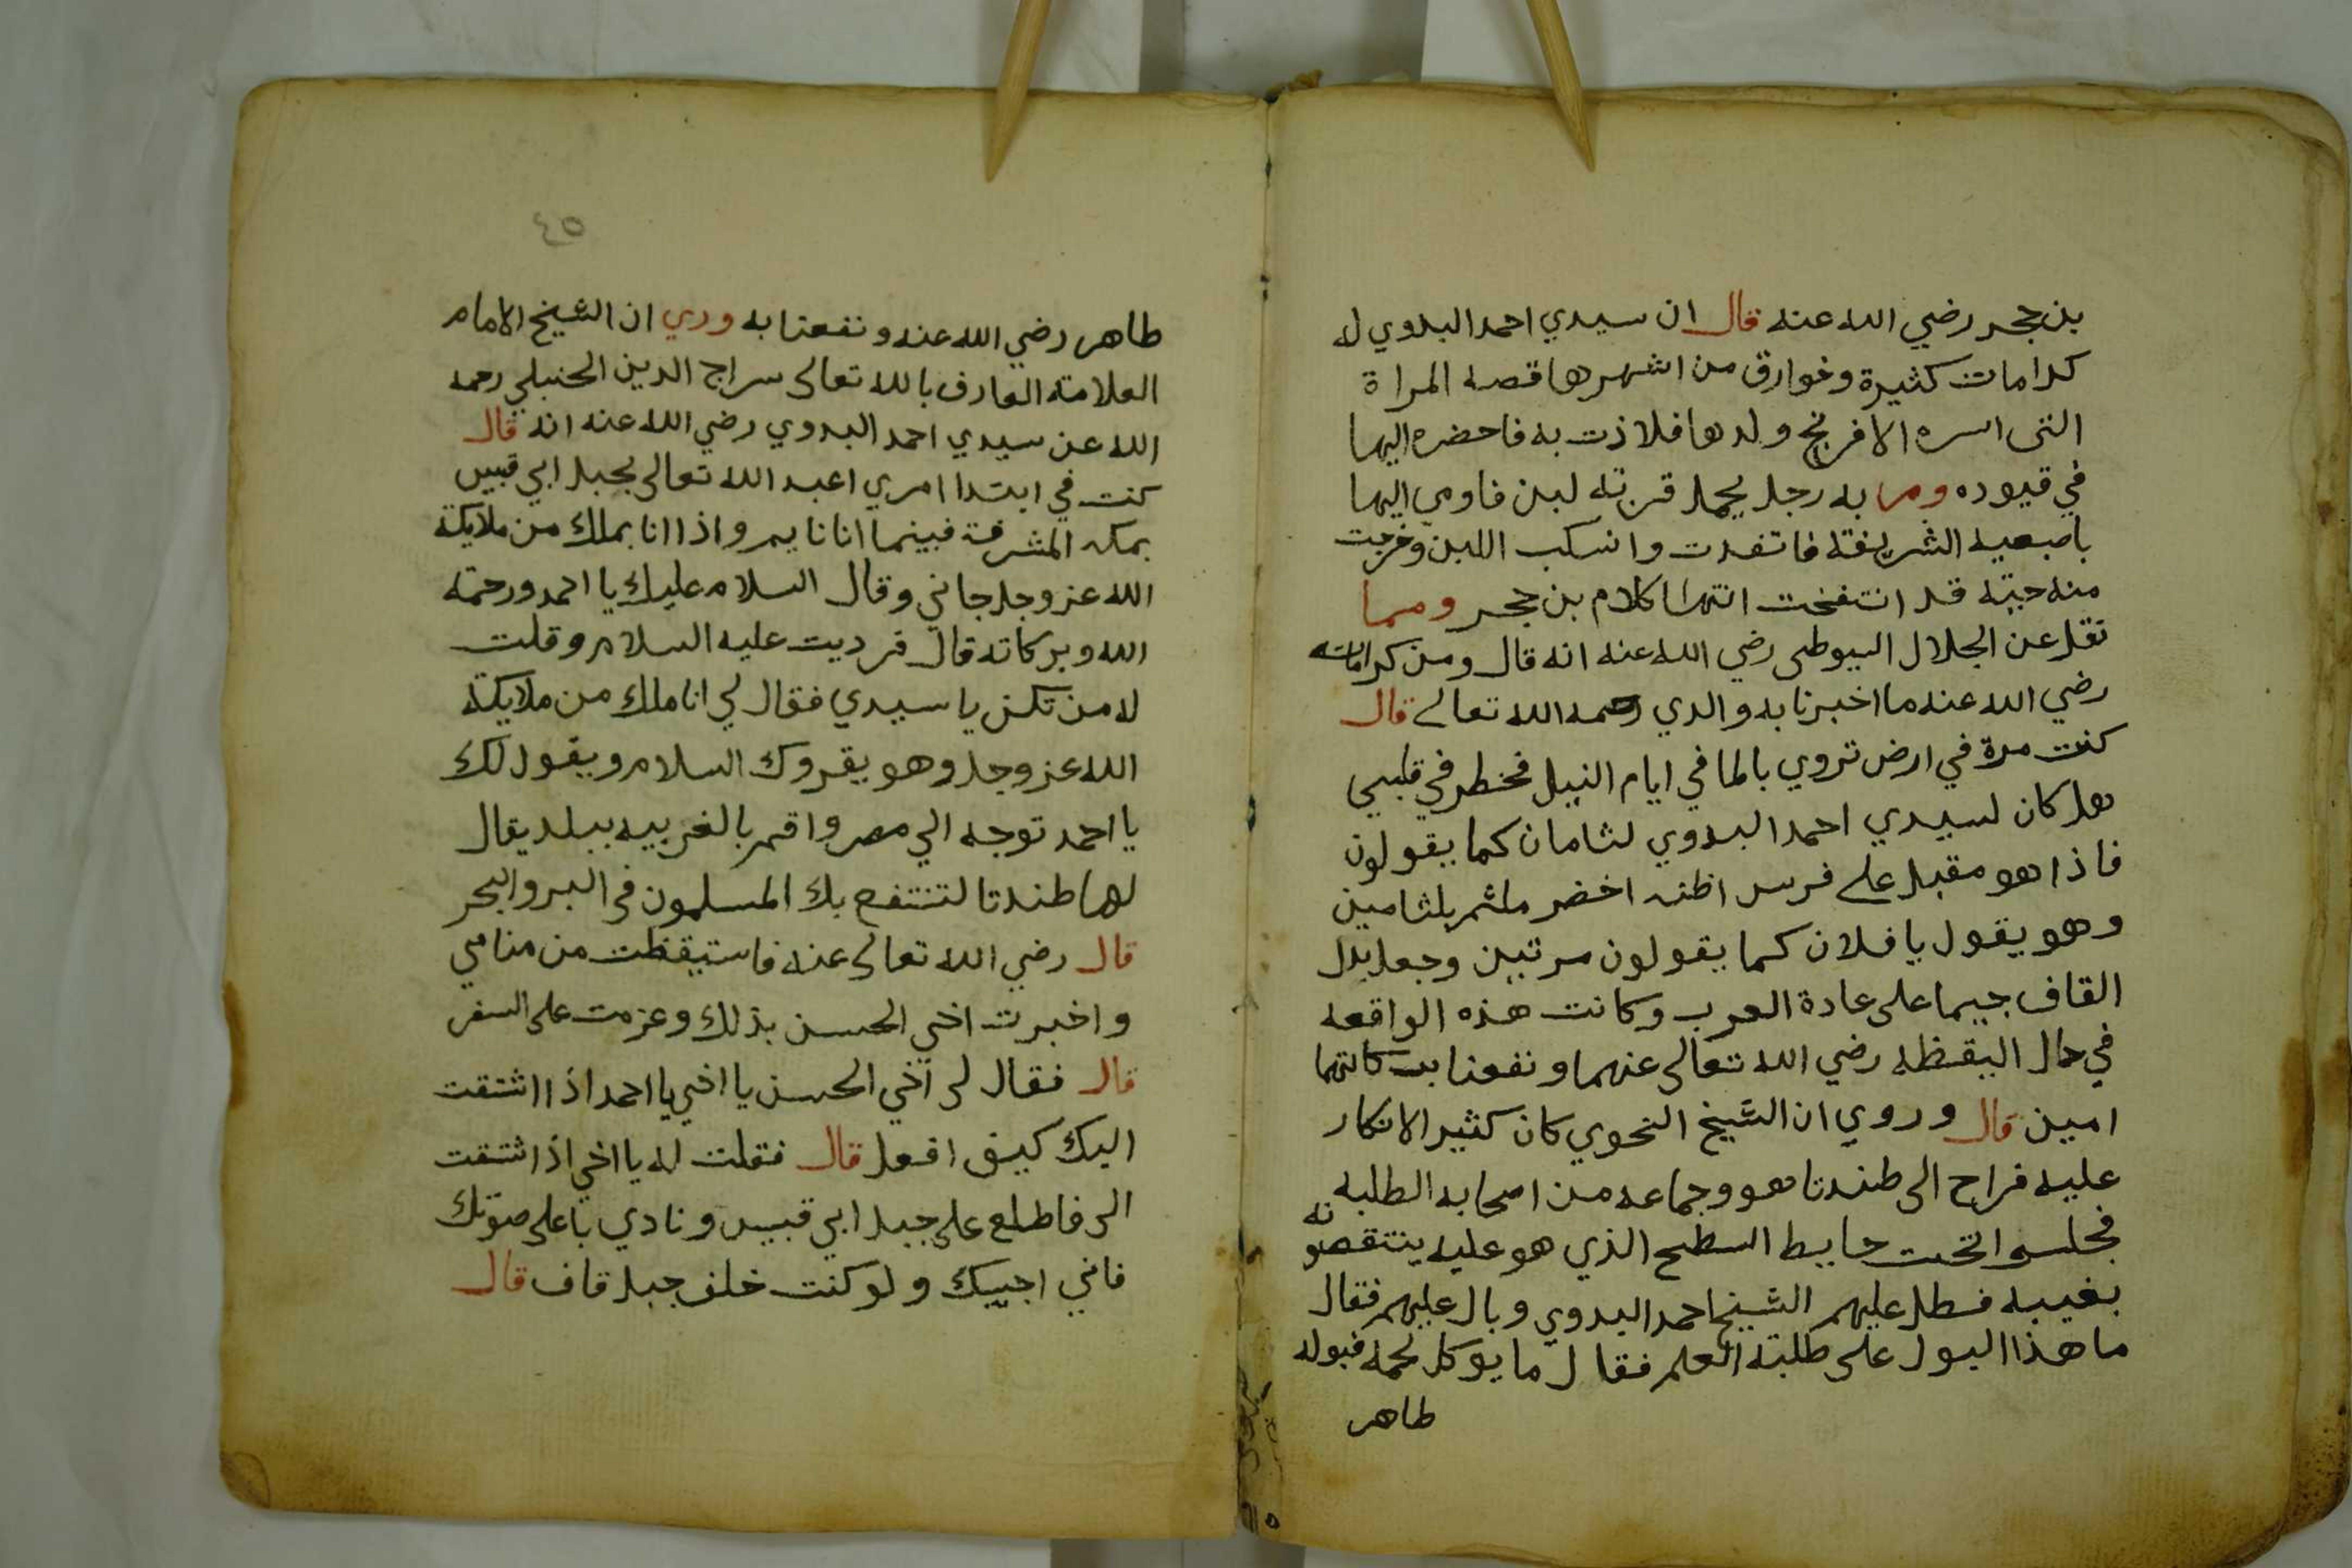 بن حجر رضي الله عنه قال ان سيدي احمد البدوي له
كرامات كثيرة وخوارق من اشهرها قصه المراة
التى اسره الافرنج ولدها فلاذت به فاحضره اليها
في قيوده ومر به رجل يحمل قربة لبن فاومي اليها
باصبعيه الشريفة فانفدت وانسكب اللبن وخرجت
منه حية قد انتفخت انتها كلام بن حجر ومما
نقل عن الجلال السيوطى رضي الله عنه انه قال ومن كراماته
رضي الله عنه ما اخبرنا به والدي رحمه الله تعالى قال
كنت مرة في ارض تروي بالما في ايام النيل فخطر في قلبي
هل كان لسيدي احمد البدوي لثامان كما يقولون
فاذا هو مقبل على فرس اظنه اخضر ملثم بلثامين
وهو يقول يا فلان كما يقولون مرتين وجعل بدل
القاف جيما على عادة العرب وكانت هذه الواقعه
في حال اليقظه رضي الله تعالى عنهما ونفعنا ببركاتهما
امين قال وروي ان الشيخ النحوي كان كثير الانكار
عليه فراح الى طندتا هو وجماعه من اصحابه الطلبه
فجلسوا تحت حايط السطح الذي هو عليه ينتقصونه
بغيبه فطل عليهم الشيخ احمد البدوي وبال عليهم فقال
ما هذا البول على طلبة العلم فقال ما يوكل لحمه فبوله
طاهر
٤٥
طاهر رضي الله عنه ونفعنا به وري ان الشيخ الامام
العلامة العارف بالله تعالى سراج الدين الحنبلي رحمه
الله عن سيدي احمد البدوي رضي الله عنه انه قال
كنت في ابتدا امري اعبد الله تعالى بجبل ابي قبيس
بمكه المشرفة فبينما انا نايم واذا انا بملك من ملايكة
الله عز وجل جاني وقال السلام عليك يا احمد ورحمة
الله وبركاته قال فرديت عليه السلام وقلت
له من تكن يا سيدي فقال لي انا ملك من ملايكة
الله عز وجل وهو يقروك السلام ويقول لك
يا احمد توجه الي مصر واقم بالغربيه ببلد يقال
لها طندتا لتنتفع بك المسلمون فى البر والبحر
قال رضي الله تعالى عنه فاستيقظت من منامي
واخبرت اخي الحسن بذلك وعزمت على السفر
قال فقال لى اخي الحسن يا اخي يا احمد اذا اشتقت
اليك كيف افعل قال فقلت له يا اخي اذا اشتقت
الى فاطلع على جبل ابي قبيس ونادي باعلى صوتك
فاني اجيبك ولو كنت خلف جبل قاف قال